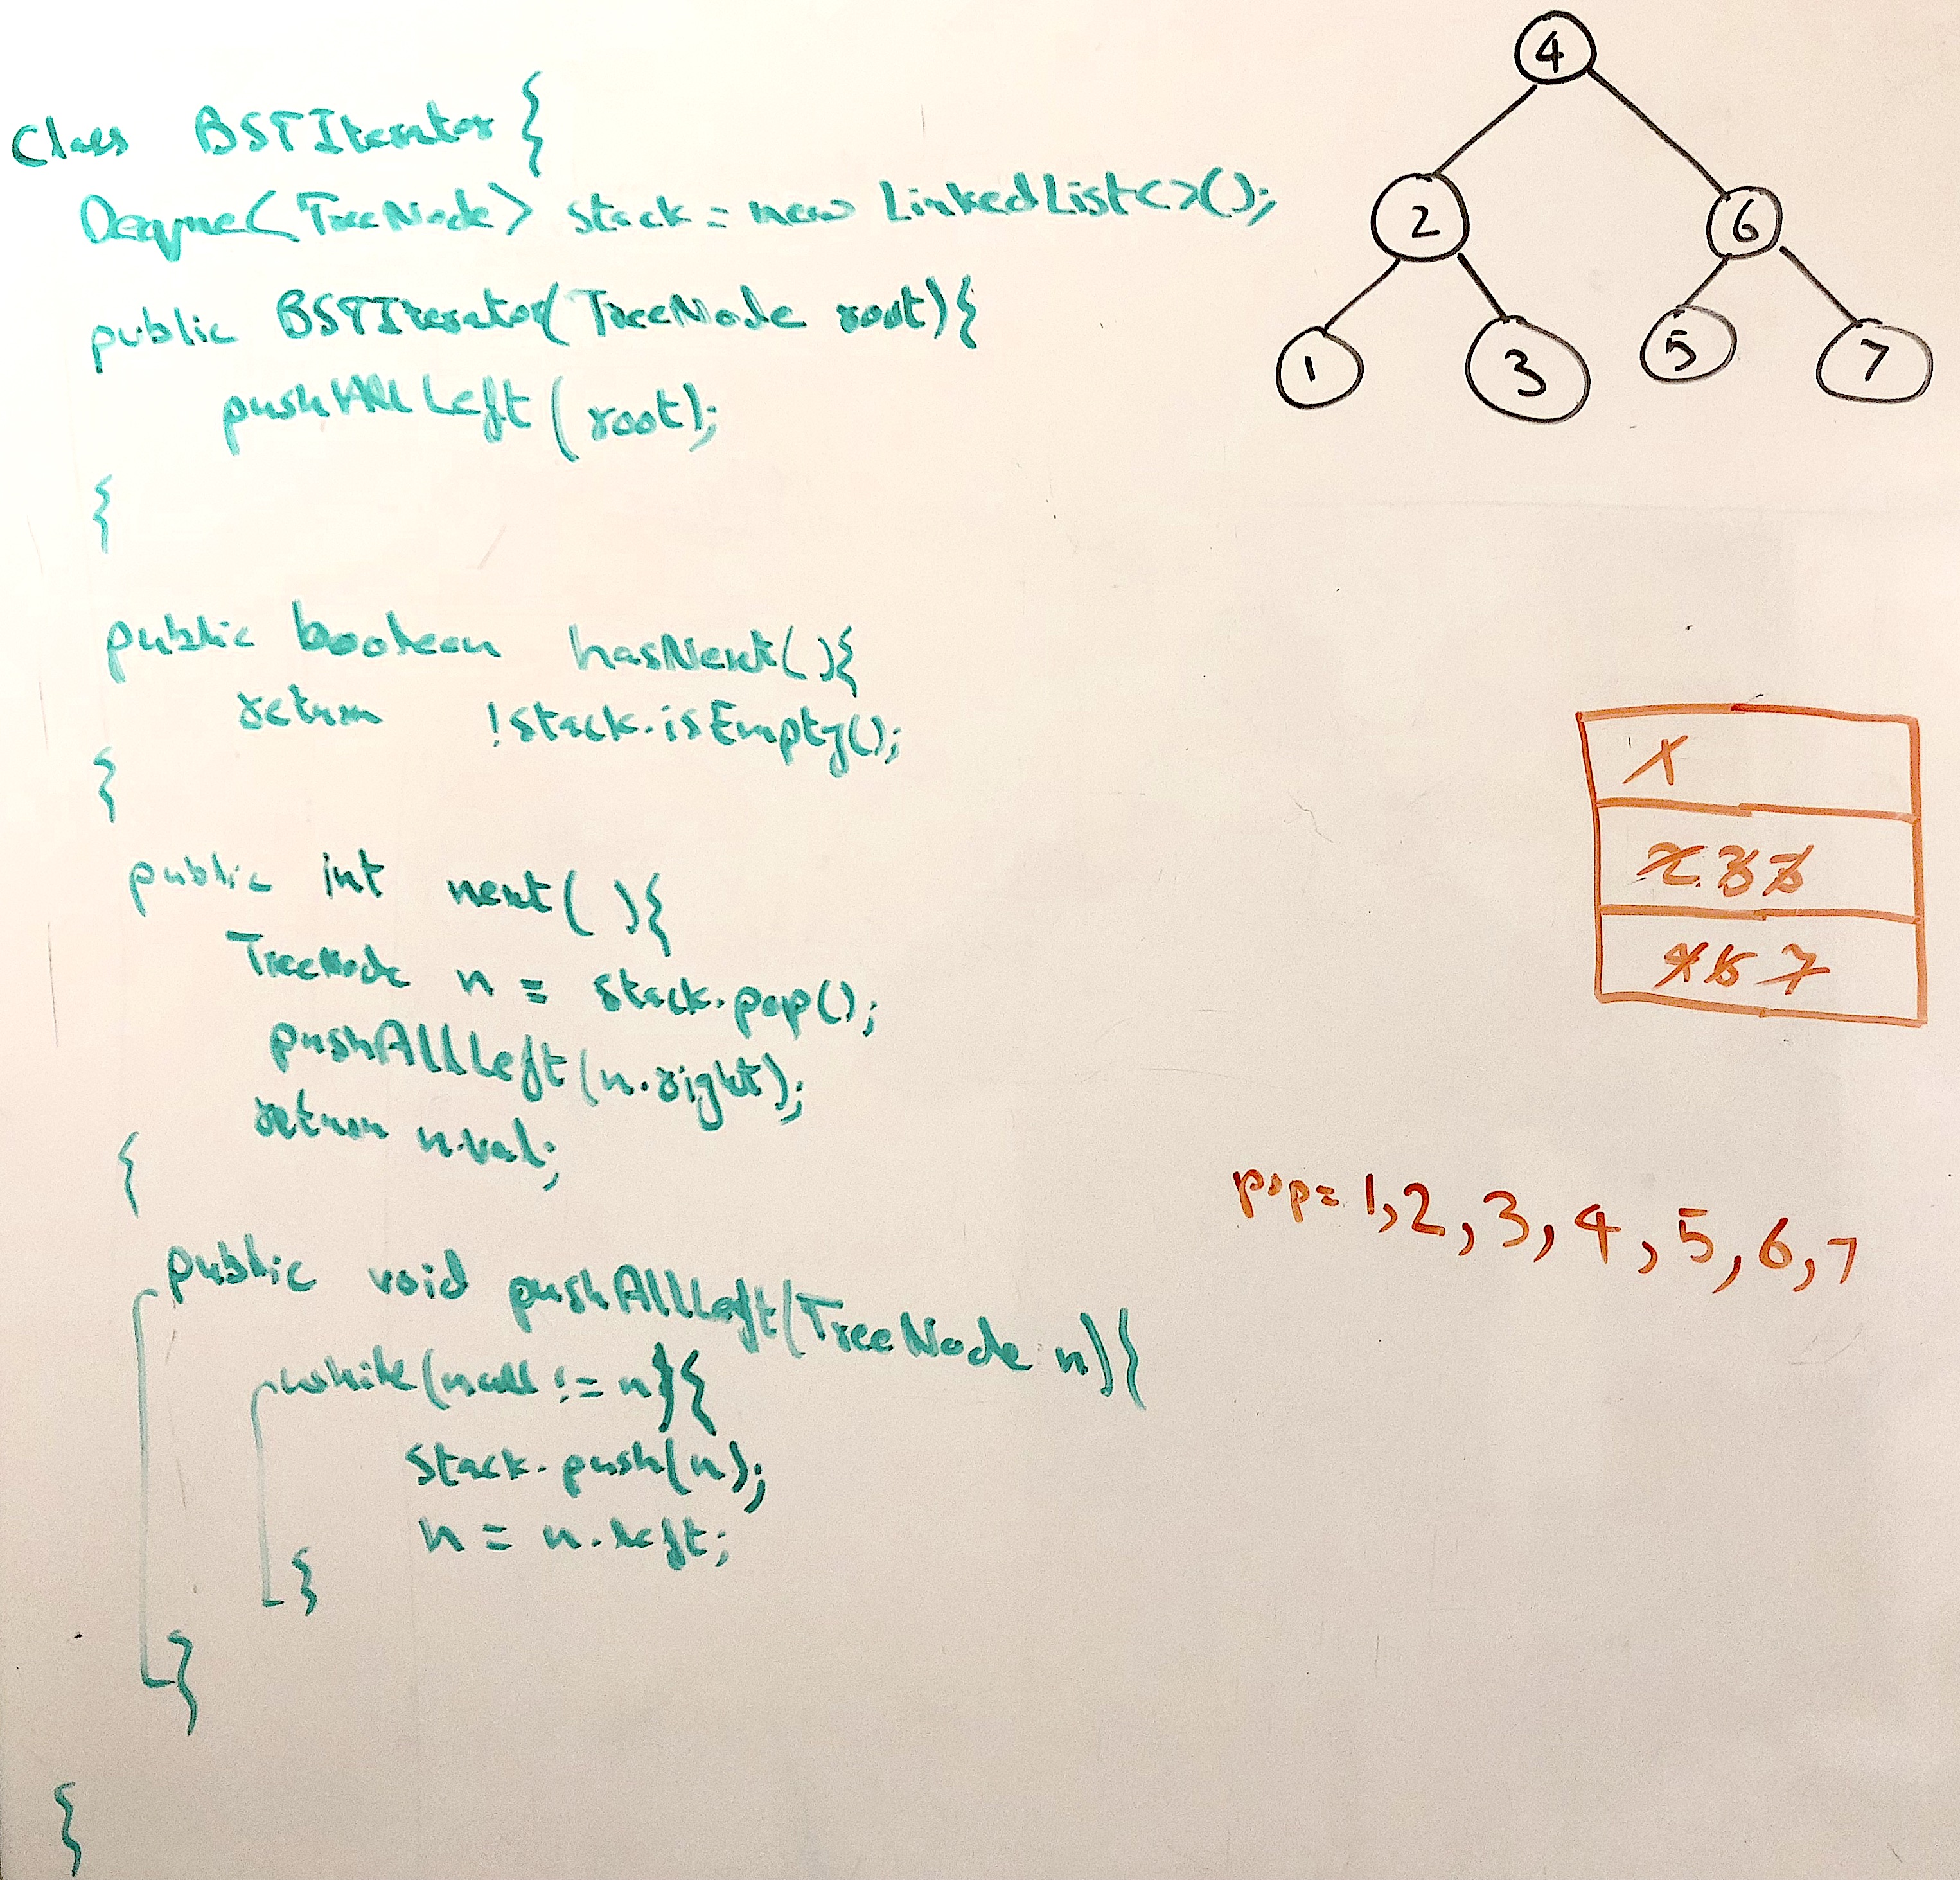 Class BSTIterator {
Deque<TreeNode> stack = new LinkedList<>();
public BSTIterator(TreeNode root){
pushAllLeft(root);
{
public boolean hasNext(){
return !stack.isEmpty();
{
public int next( ){
TreeNode n = stack.pop();
pushAllLeft(n.right);
return n.val;
{
public void pushAllLeft(TreeNode n){
while(null != n){
stack.push(n);
n = n.left;
}
}
{
4
2 6
1 3 5 7
7
pop= 1,2,3,4,5,6,7